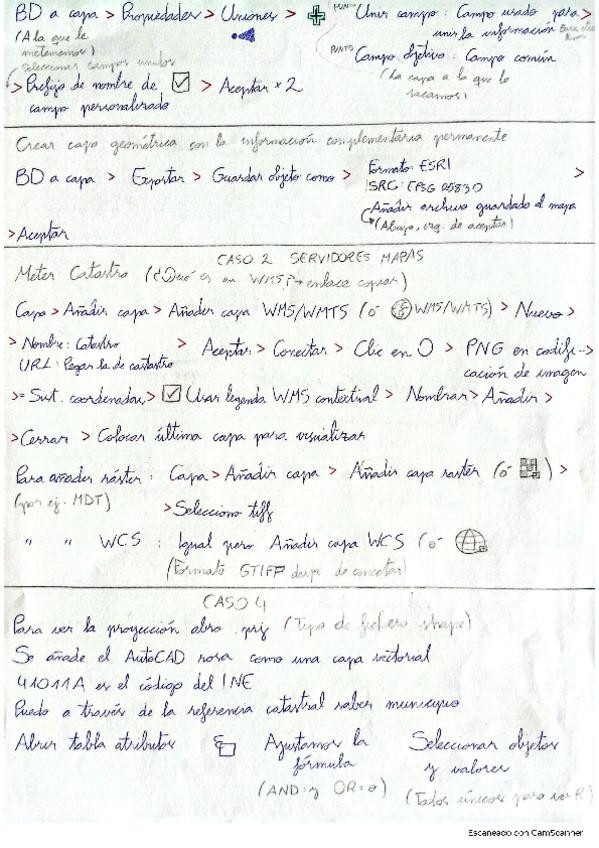 BD a capa > Propiedades > Uniones > PUNTO Unir campo : Campo usado para >
(A la que le metemos) unir la información
Seleccionar campos unidos PUNTO Campo objetivo : Campo común
> Prefijo de nombre de campo personalizado > Aceptar x 2 (la capa a la que le sacamos)
Crear capa geométrica con la información complementaria permanente
BD a capa > Exportar > Guardar objeto como > Formato: ESRI >
SRC: EPSG 25830
Añadir archivo guardado al mapa
> Aceptar (Abajo, izq. de aceptar)
CASO 2 SERVIDORES MAPAS
Meter Catastro (¿Qué es en WMS? → enlace copiar)
Capa > Añadir capa > Añadir capa WMS/WMTS (ó WMS/WMTS) > Nuevo >
> Nombre: Catastro > Aceptar > Conectar > Clic en O > PNG en codifi- >
URL: Pegar la de catastro cación de imagen
> = Sist. coordenadas > Usar legenda WMS contextual > Nombrar > Añadir >
> Cerrar > Colocar última capa para visualizar
Para añadir ráster : Capa > Añadir capa > Añadir capa raster (ó ) >
(por ej. MDT) > Selecciono tiff
" " WCS : Igual pero Añadir capa WCS (ó
(Formato GTIFF desp. de conectar)
CASO 4
Para ver la proyección abro .prj (Tipo de fichero shape)
Se añade el AutoCAD rosa como una capa vectorial
41011A es el código del INE
Puedo a través de la referencia catastral saber municipio
Abrir tabla atributos Ajustamos la fórmula Seleccionar objetos y valores
(AND: y OR = o) (Todos únicos para ver R)
Escaneado con CamScanner